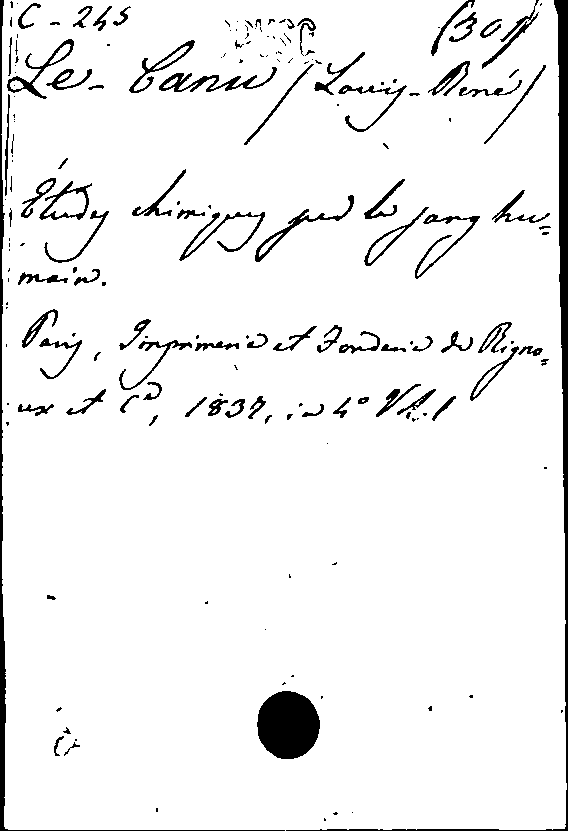 C - 245 (301)
Le-Canu (Louis-René)
Études chimiques sur le sang hu=
main.
Paris, Imprimerie et Fonderie de Rigno=
ux et Cª, 1837, in 4º Vol. 1